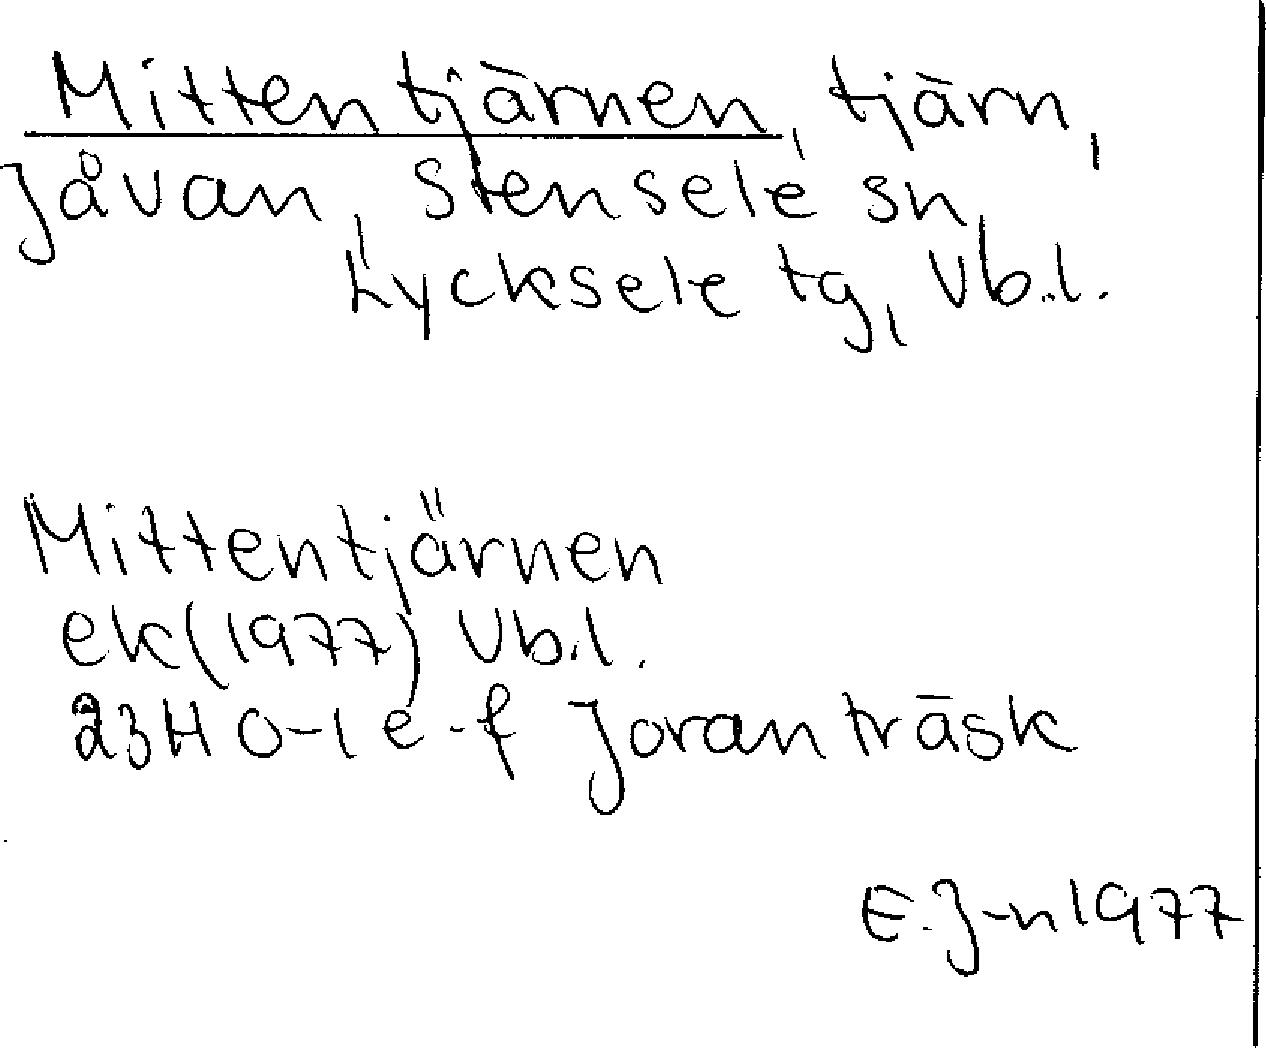 Mittentjärnen, tjärn,
Jåvan, Stensele sn,
Lycksele tg, Vb.l.
Mittentjärnen
ek(1977) Vb.l.
23H 0-1 e-f Joranträsk
E.J-n 1977